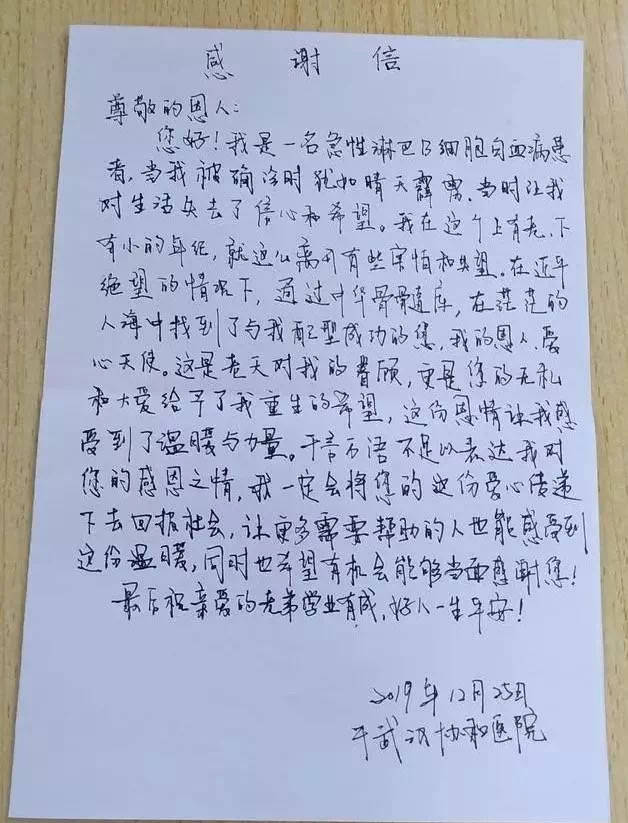 感谢信
尊敬的恩人:
您好!我是一名急性淋巴B细胞白血病患
者,当我被确诊时犹如晴天霹雳,当时让我
对生活失去了信心和希望。我在这个上有老、下
有小的年纪,就这么离开有些害怕和失望。在近乎
绝望的情况下,通过中华骨髓库,在茫茫的
人海中找到了与我配型成功的您,我的恩人、爱
心天使。这是老天对我的眷顾,更是您的无私
和大爱给予了我重生的希望,这份恩情让我感
受到了温暖与力量。千言万语不足以表达我对
您的感恩之情,我一定会将您的这份爱心传递
下去回报社会,让更多需要帮助的人也能感受到
这份温暖,同时也希望有机会能够当面感谢您!
最后祝亲爱的兄弟学业有成,好人一生平安!
2019年12月25日
于武汉协和医院